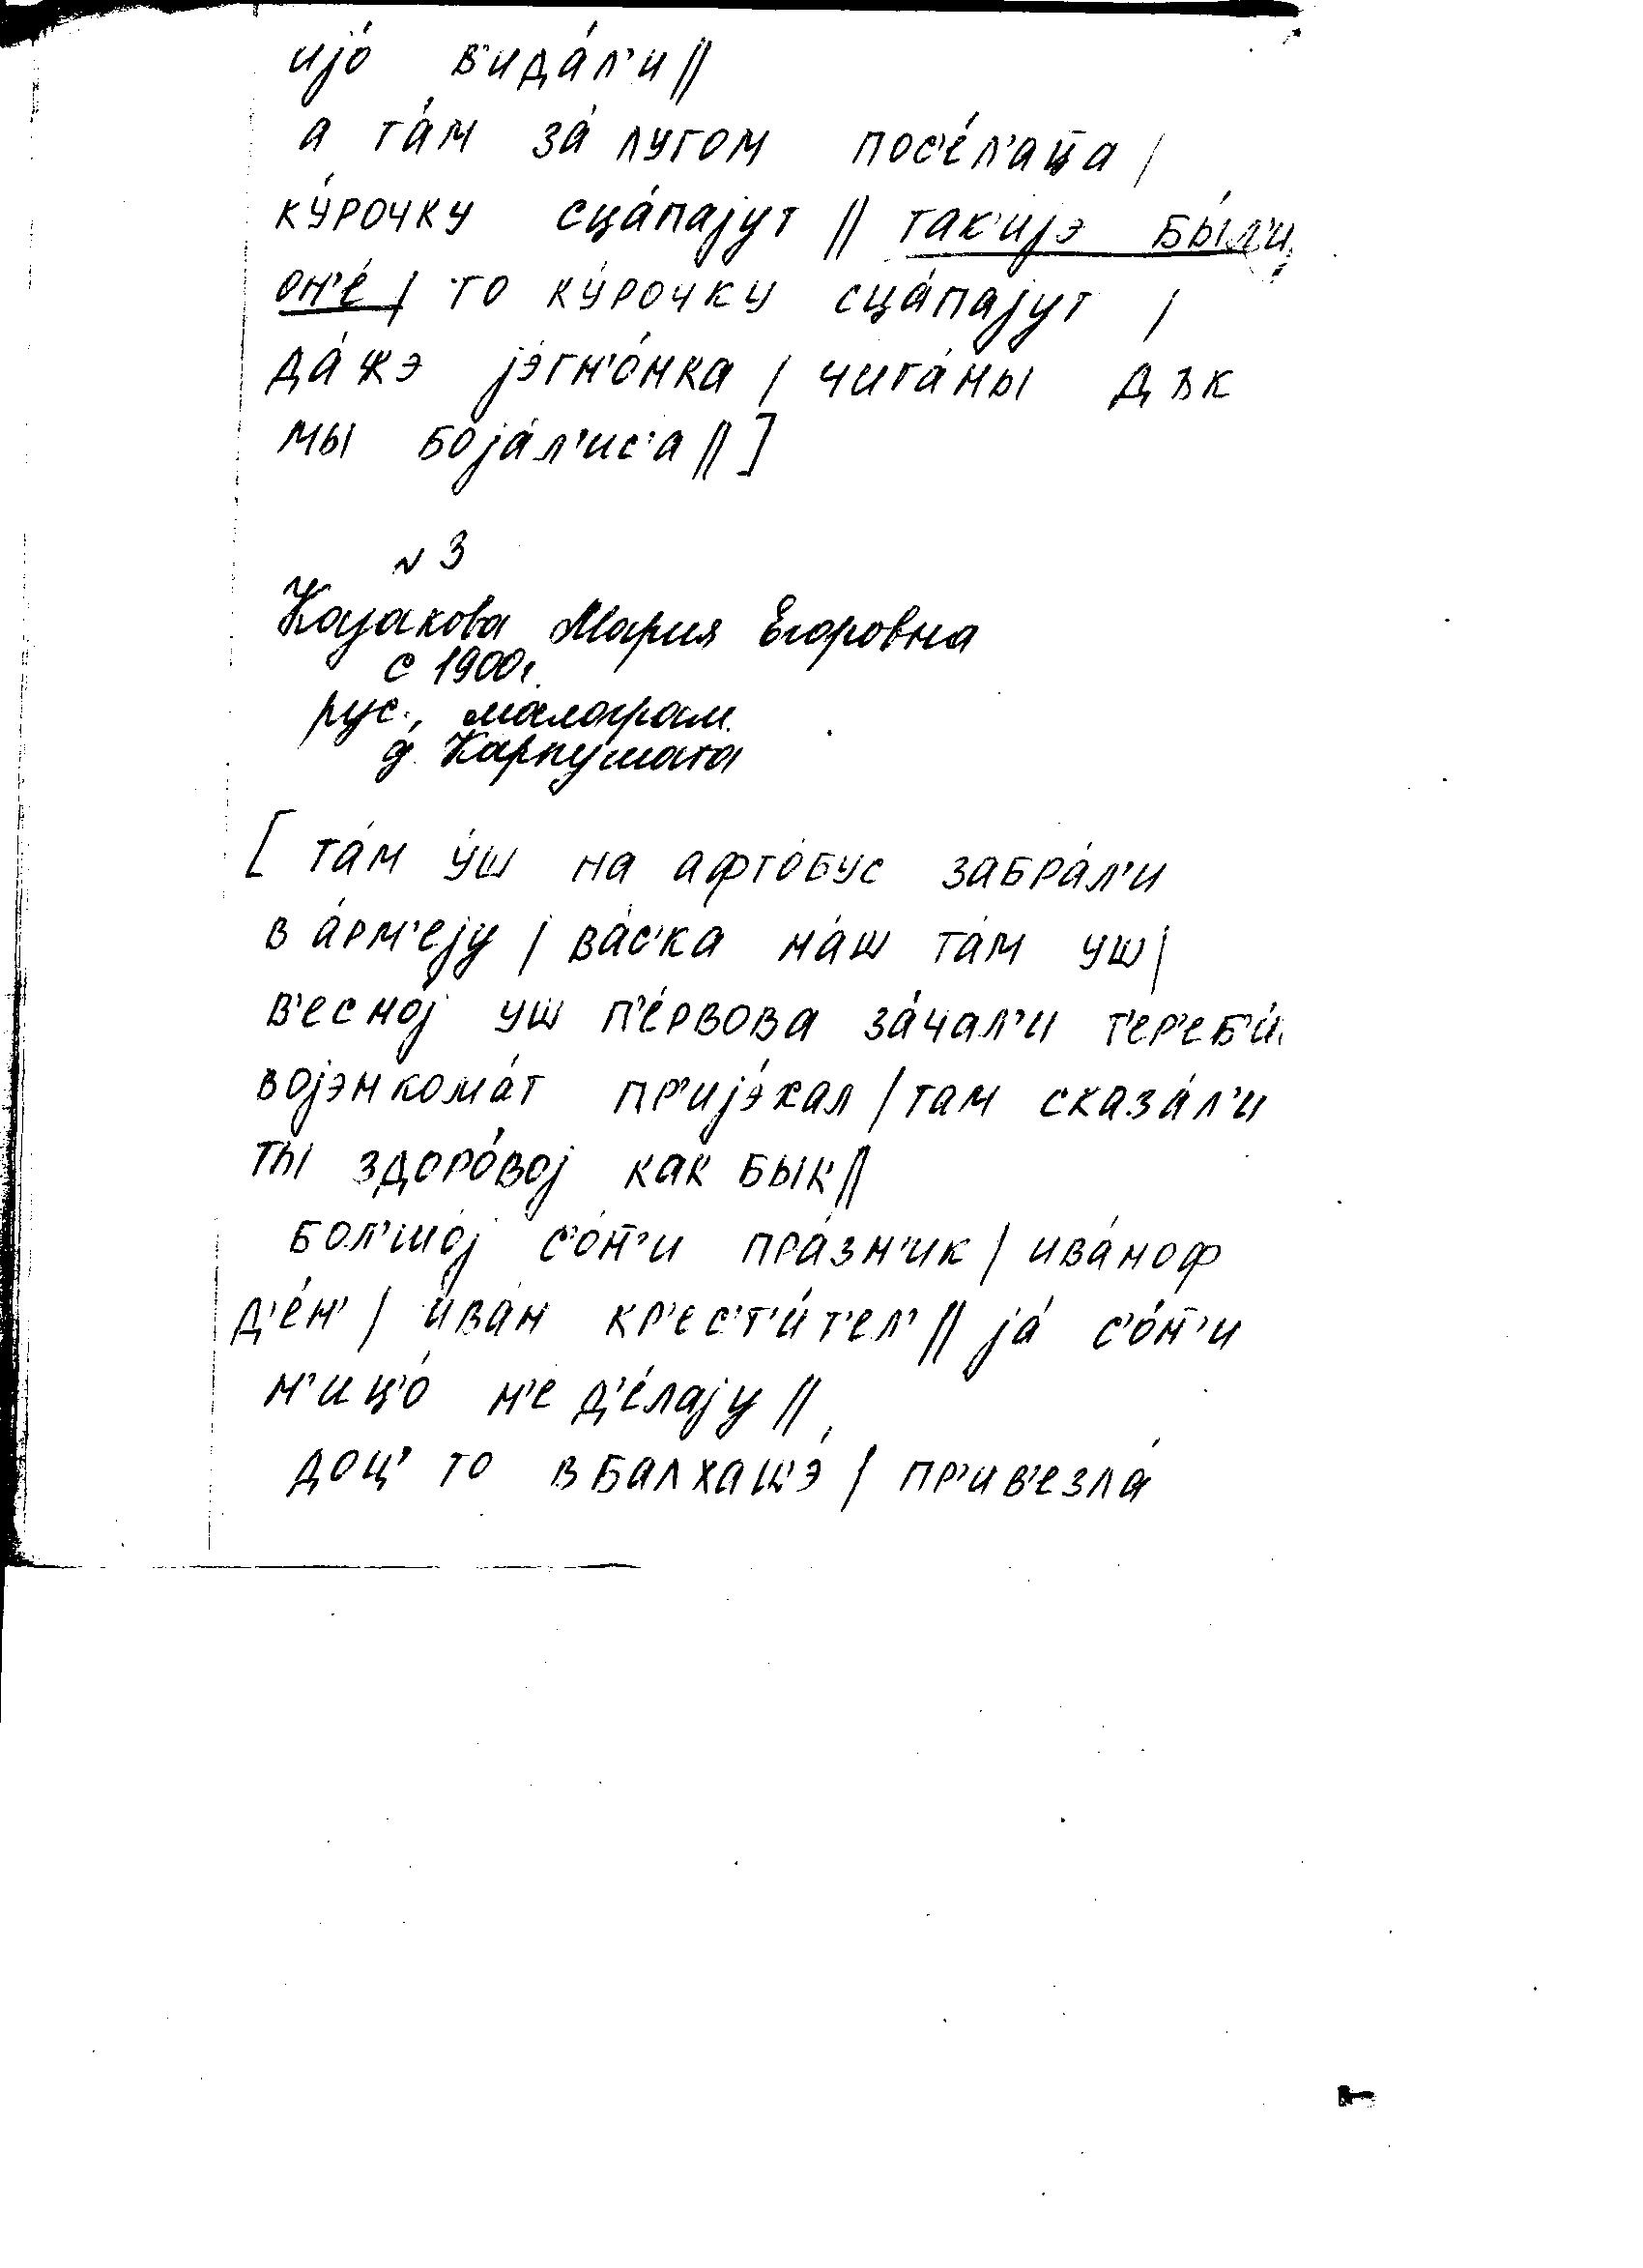 ијо́ в'ида́л'и ||
а та́м за́ лугом пос'е́л'ац̄а |
ку́рочку сца́пајут || так'ијэ бы́л'и
он'е́ | то ку́рочку сца́пајут |
да́жэ јэгн'о́нка | чига́ны дък
мы боја́л'ис'а || ]
N 3
Казакова Мария Егоровна
с 1900г.
рус., малограм.
д. Карпушата
[ та́м у́ш на афто́бус забра́л'и
в а́рм'еју | ва́с'ка на́ш та́м уш |
в'есно́ј уш п'е́рвова за́чал'и т'ер'еб'и́
војэнкома́т пр'ијэ́хал | там сказа́л'и
ты здоро́вој как бык ||
бол'шо́ј с'о́п̄'и пра́зн'ик | ива́ноф
д'е́н' | ива́н кр'ес'т'и́т'ел' || ја́ с'о́п̄'и
н'ицо́ н'е д'е́лају ||
доц' то в Балхашэ́ | пр'ив'езла́